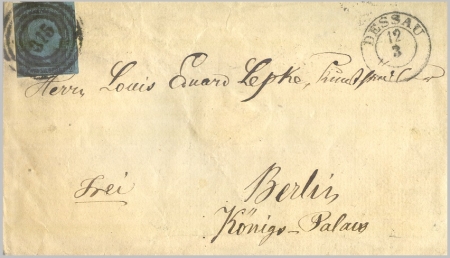 315
DESSAU
12
3
Herrn Louis Eduard Lepke,
Frei
Berlin
Königs-Palais